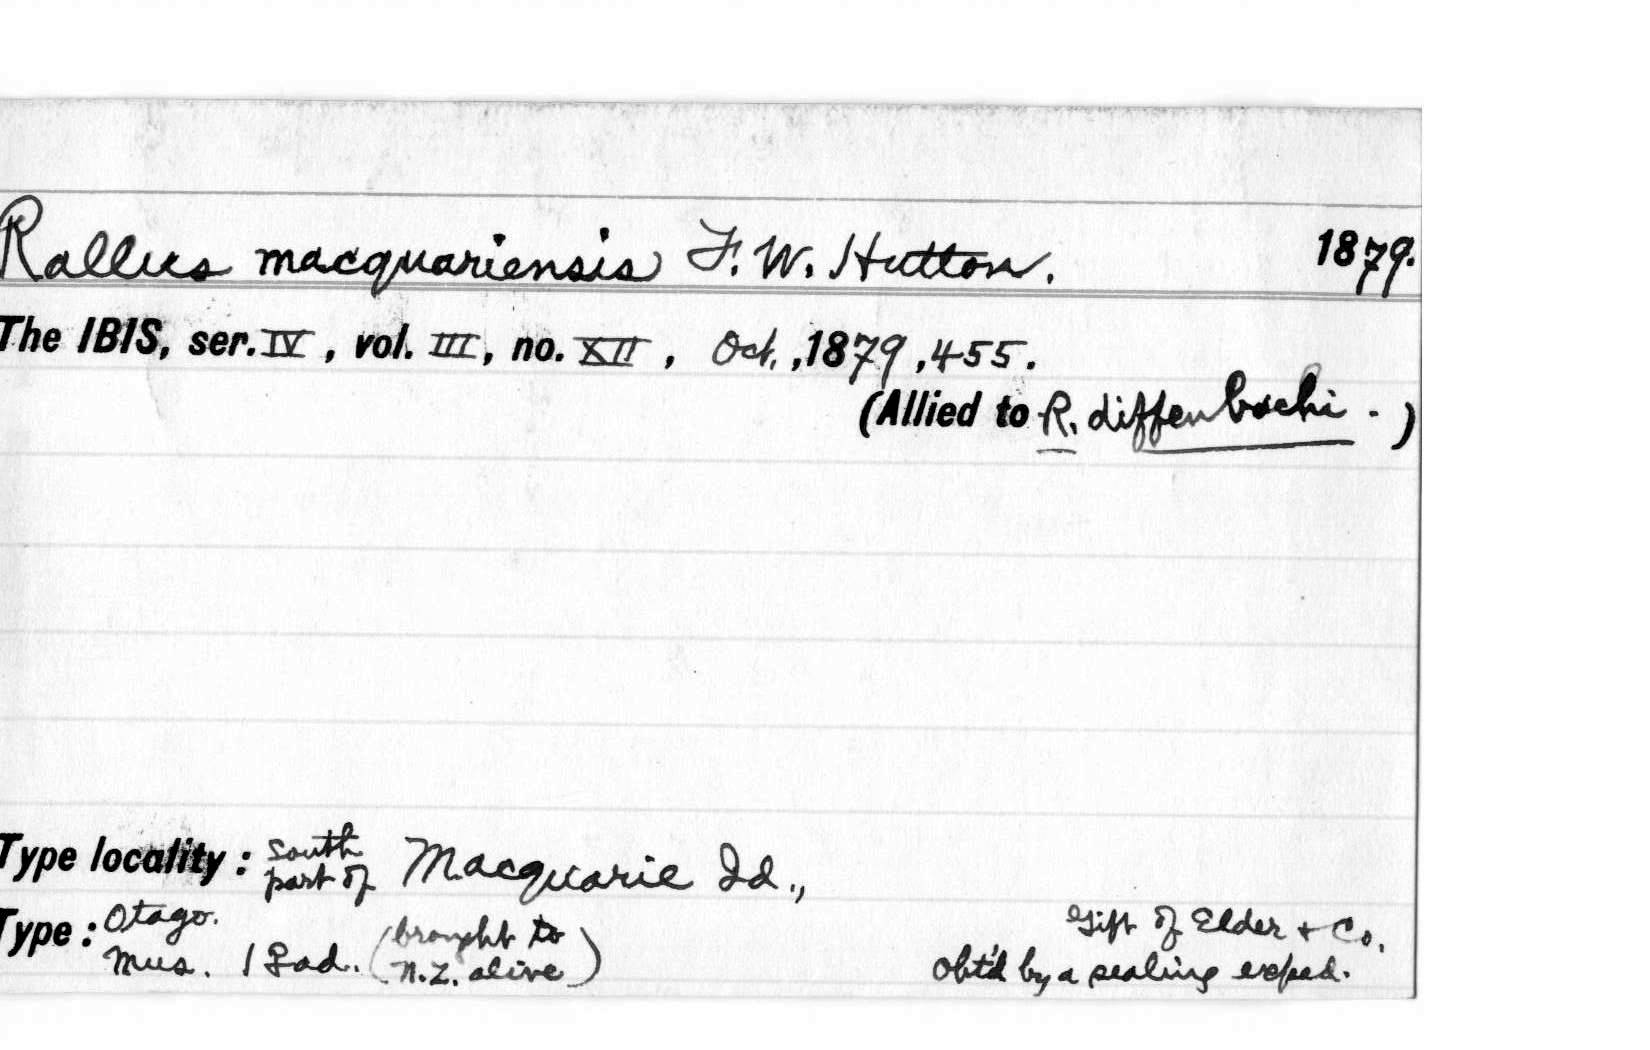 Rallus macquariensis F. W. Hutton. 1879.
The IBIS, ser. IV, vol. III, no. XII, Oct., 1879, 455.
(Allied to R. diffenbachi.)
Type locality: south part of Macquarie Id.,
Type: Otago. Mus. 1 ad. (brought to N.Z. alive)
Gift of Elder + Co.
Obt'd by a sealing exped.